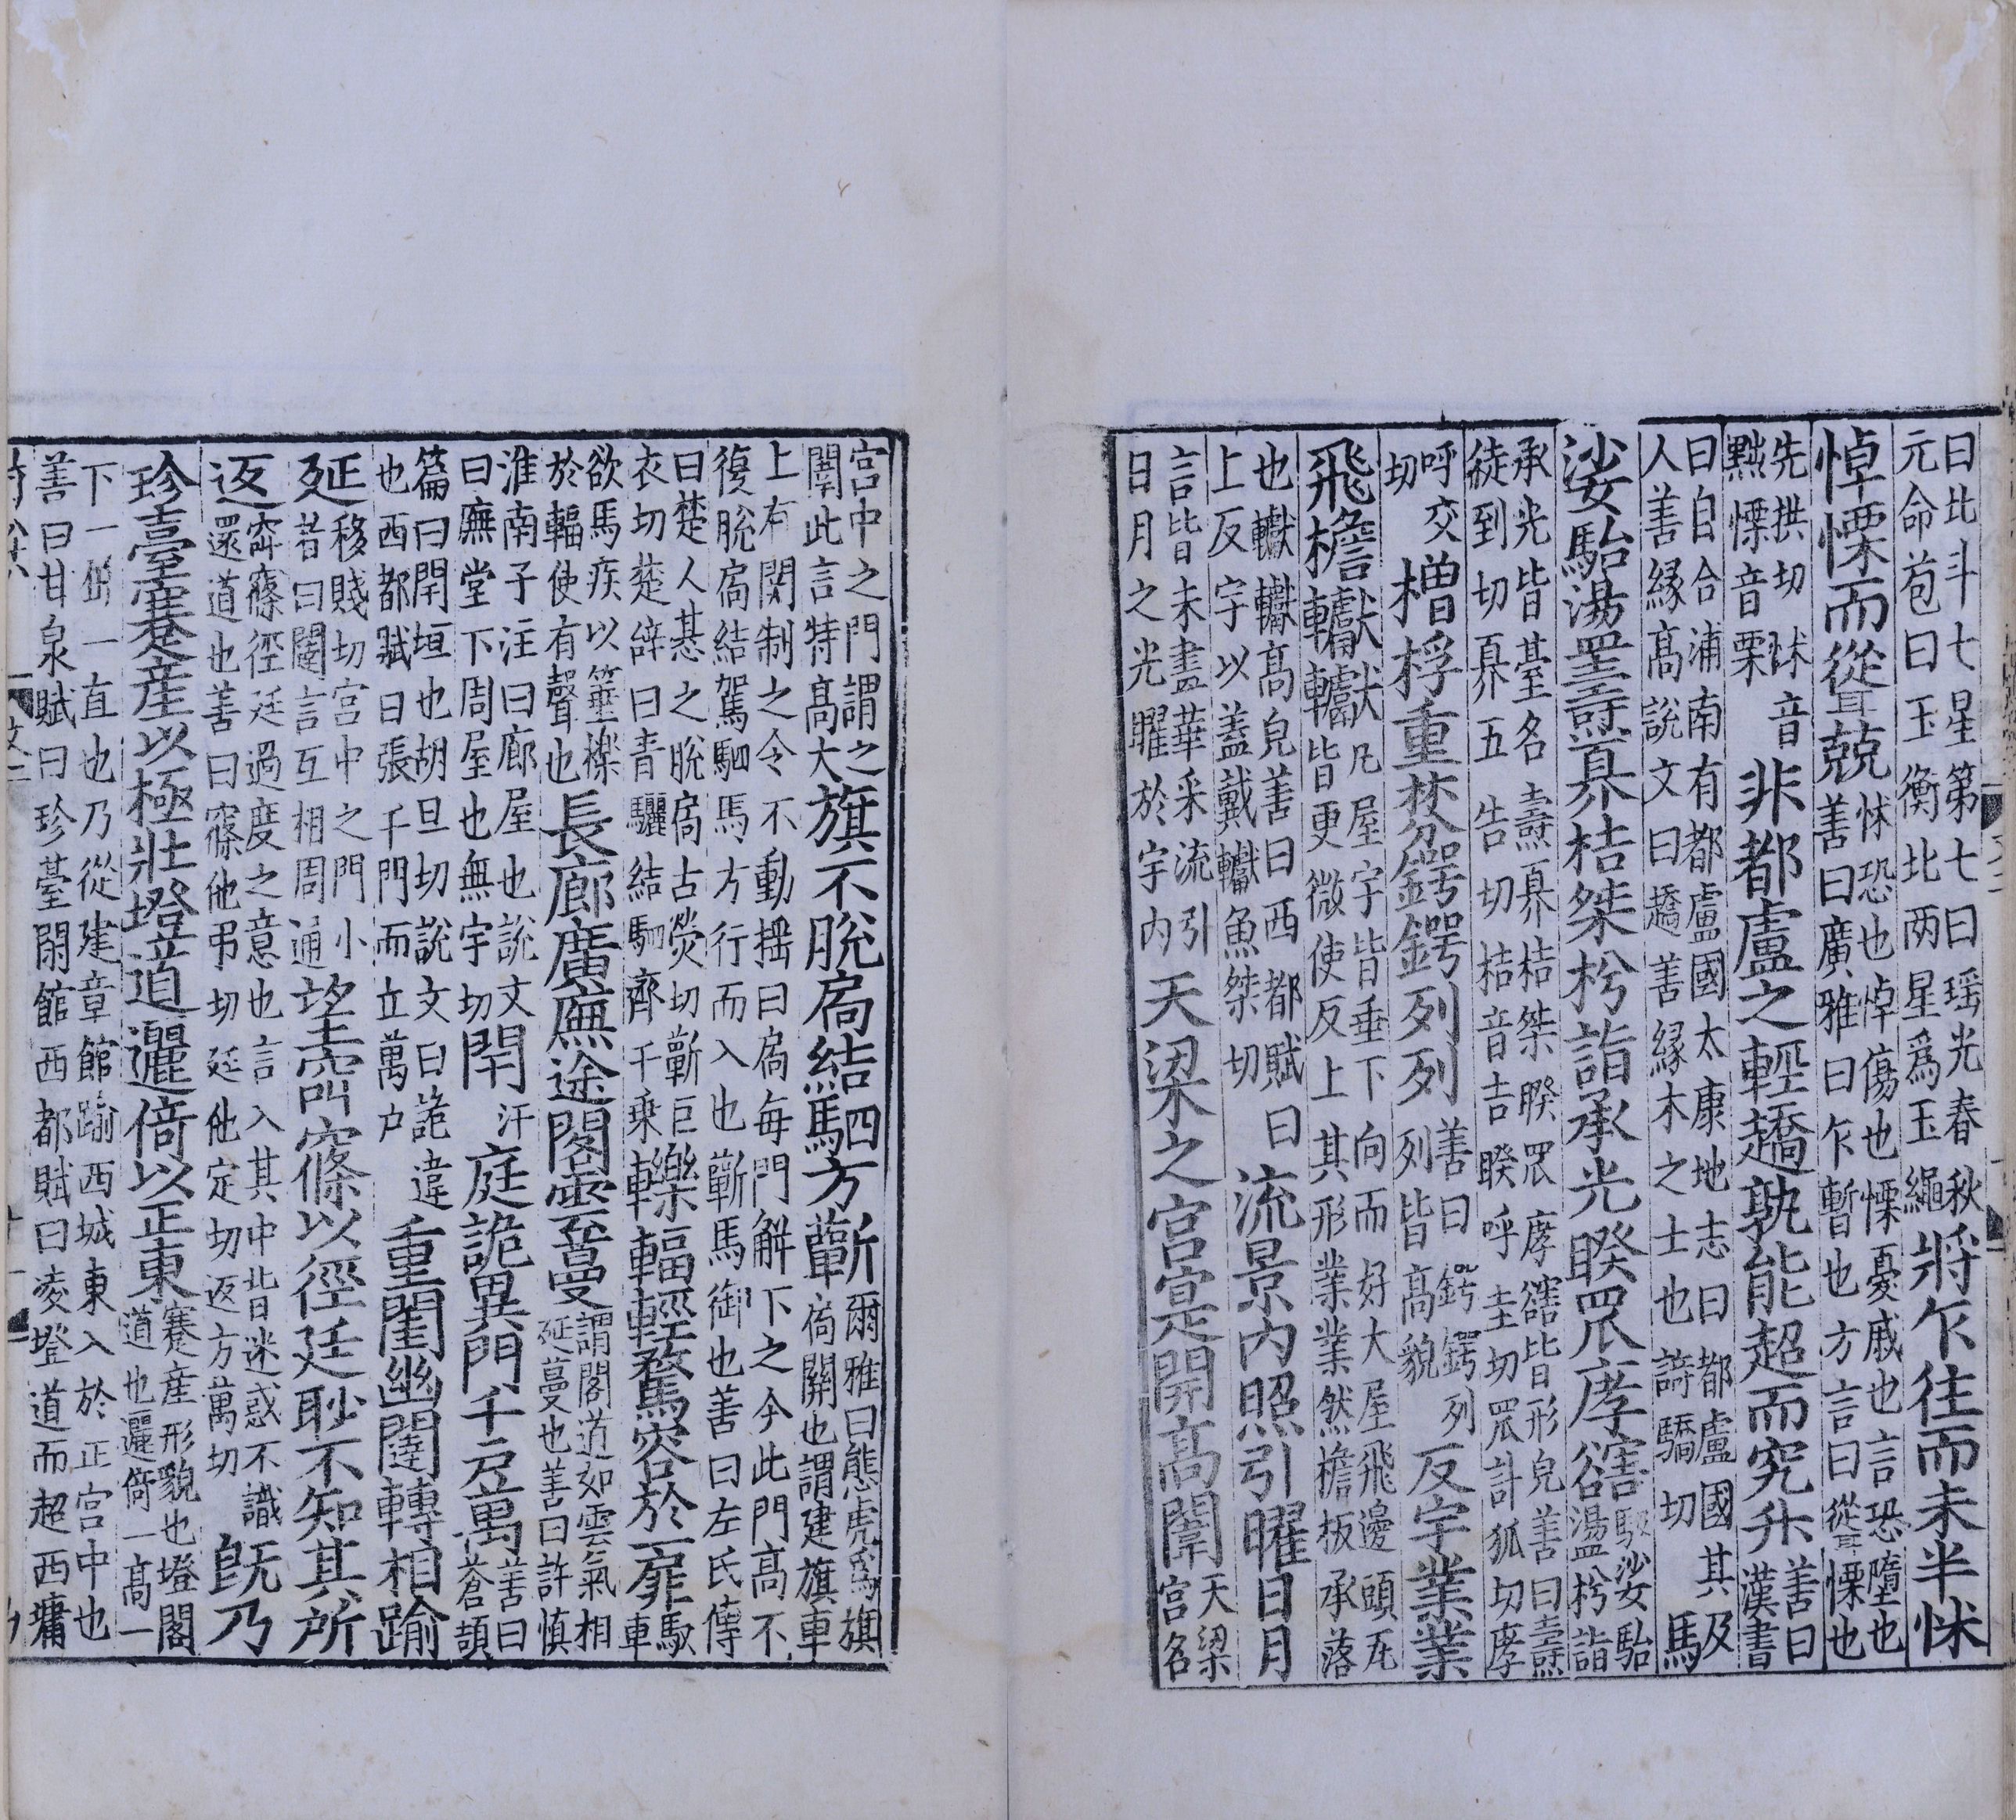 曰北斗七星第七曰瑶光春秋元命苞曰玉衡北两星爲玉繩將乍往而未半怵
悼慄而慫兢怵恐也悼傷也慄憂戚也言恐墮也善曰廣雅曰乍暫也方言曰慫慄也
先拱切怵音黜慄音栗非都盧之輕趫孰能超而究升善曰漢書
曰自合浦南有都盧國太康地志曰都盧國其人善縁髙說文曰趫善縁木之士也䜋驕切馺
娑駘盪燾奡桔桀枍詣承光睽罛庨豁馺娑駘盪枍詣
承光皆臺名燾奡桔桀睽罛庨豁皆形皃善曰燾徒到切奡五告切桔音吉睽呼圭切罛計狐切庨
呼交切橧桴重棼鍔鍔列列善曰鍔鍔列列皆髙貌反宇業業
飛檐𨏥𨏥凡屋宇皆垂下向而好大屋飛邊頭瓦皆更微使反上其形業業然檐板承落
也𨏥𨏥髙皃善曰西都賦曰上反宇以蓋戴𨏥魚桀切流景内照引曜日月
言皆朱畫華采流引日月之光曜於宇内天梁之宫寔開髙闈天梁宫名
宫中之門謂之闈此言特髙大旗不脫扃結駟方蘄爾雅曰熊虎爲旗扃關也謂建旗車
上有関制之令不動摇曰扃每門解下之今此門髙不復脫扃結駕駟馬方行而入也蘄馬御也善曰左氏傳
曰楚人惎之脫扃古熒切蘄巨衣切楚辭曰青驪結駟齊千乗轢輻輕騖容於一扉馭車
欲馬疾以箠櫟於輻使有聲也長廊廣廡途閣雲蔓謂閣道如雲氣相延蔓也善曰許慎
淮南子注曰廊屋也說文曰廡堂下周屋也無宇切閈汗庭詭異門千戶萬善曰蒼頡
篇曰閈垣也胡旦切說文曰詭違也西都賦曰張千門而立萬户重閨幽闥轉相踰
延移賤切宫中之門小昔曰闥言互相周通望䆗窱以徑廷眇不知其所
返䆗窱徑廷過度之意也言入其中皆迷惑不識還道也善曰窱他弔切廷他定切返方萬切旣乃
珍臺蹇産以極壯墱道邐倚以正東蹇産形貌也墱閣道也邐倚一髙一
下一屈一直也乃從建章館踰西城東入於正宫中也善曰甘泉賦曰珍臺閒館西都賦曰凌墱道而超西墉